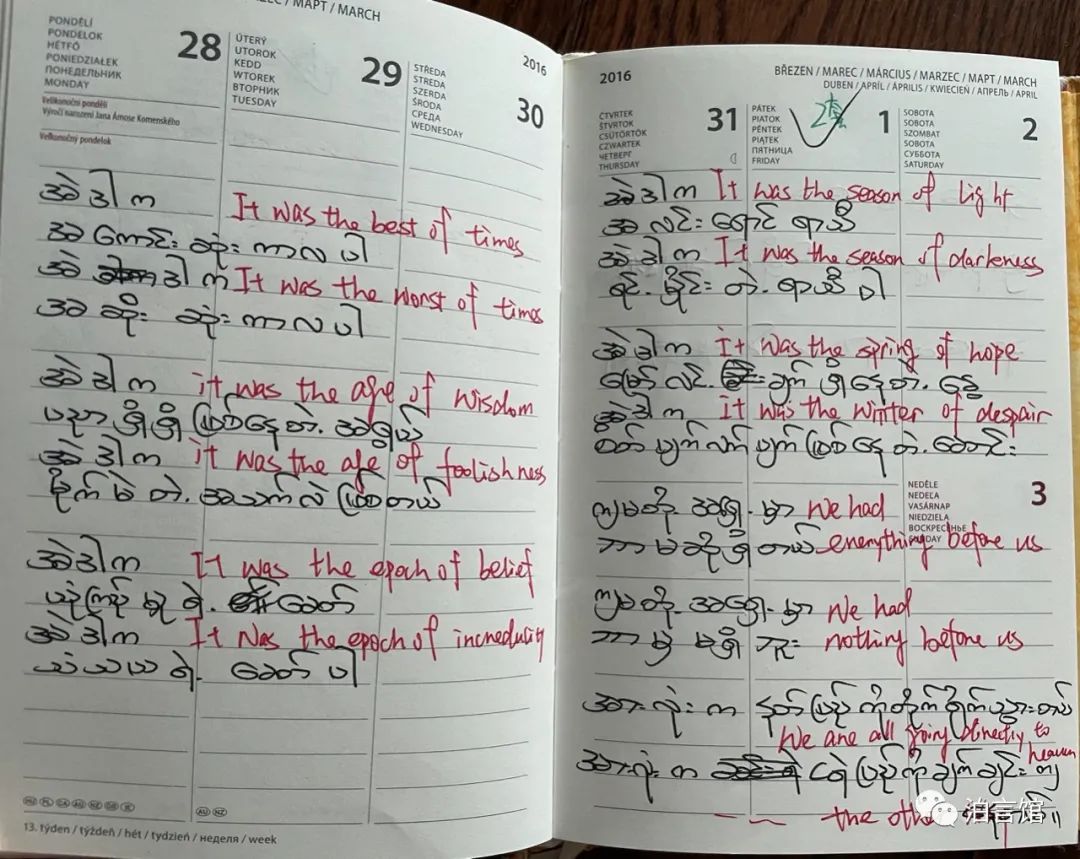 BŘEZEN / MAREC / MÁRCIUS / MARZEC / МАРТ / MARCH
PONDĚLÍ
PONDELOK
HÉTFŐ
PONIEDZIAŁEK
ПОНЕДЕЛЬНИК
MONDAY
28
Velikonoční pondělí
Výročí narození Jana Ámose Komenského
Veľkonočný pondelok
ÚTERÝ
UTOROK
KEDD
WTOREK
ВТОРНИК
TUESDAY
29
STŘEDA
STREDA
SZERDA
ŚRODA
СРЕДА
WEDNESDAY
2016
30
အဲဒါက It was the best of times
အကောင်းဆုံးကာလပါ
အဲဒါက It was the worst of times
အဆိုးဆုံးကာလပါ
အဲဒါက it was the age of wisdom
ပညာရှိရှိဖြစ်နေတဲ့အရွယ်
အဲဒါက it was the age of foolishness
မိုက်မဲတဲ့အသက်လဲဖြစ်တယ်
အဲဒါက It was the epoch of belief
ယုံကြည်မှုရဲ့ခေတ်
အဲဒါက It was the epoch of incredulity
သံသယရဲ့ခေတ်ပါ
13. týden / týždeň / hét / tydzień / неделя / week
2016
BŘEZEN / MAREC / MÁRCIUS / MARZEC / МАРТ / MARCH
DUBEN / APRÍL / ÁPRILIS / KWIECIEŃ / АПРЕЛЬ / APRIL
ČTVRTEK
ŠTVRTOK
CSÜTÖRTÖK
CZWARTEK
ЧЕТВЕРГ
THURSDAY
31
PÁTEK
PIATOK
PÉNTEK
PIĄTEK
ПЯТНИЦА
FRIDAY
1
SOBOTA
SOBOTA
SZOMBAT
SOBOTA
СУББОТА
SATURDAY
2
အဲဒါက It was the season of light
အလင်းရောင်ရာသီ
အဲဒါက It was the season of darkness
မှိုင်းတဲ့ရာသီပါ
အဲဒါက it was the spring of hope
မျှော်လင့်ချက်ရှိနေတဲ့နွေ
အဲဒါက it was the winter of despair
စိတ်ပျက်လက်ပျက်ဖြစ်နေတဲ့ဆောင်း
NEDĚLE
NEDEĽA
VASÁRNAP
NIEDZIELA
ВОСКРЕСЕНЬЕ
SUNDAY
3
ကျမတို့အရှေ့မှာ we had
ဘာမဆိုရှိတယ် everything before us
ကျမတို့အရှေ့မှာ we had
ဘာမှမရှိဘူး nothing before us
အားလုံးက နတ်ပြည်ကိုတိုက်ရိုက်သွားတယ်
We are all going directly to heaven
အားလုံးက ငရဲပြည်ကိုချက်ချင်း
the other
泊言馆